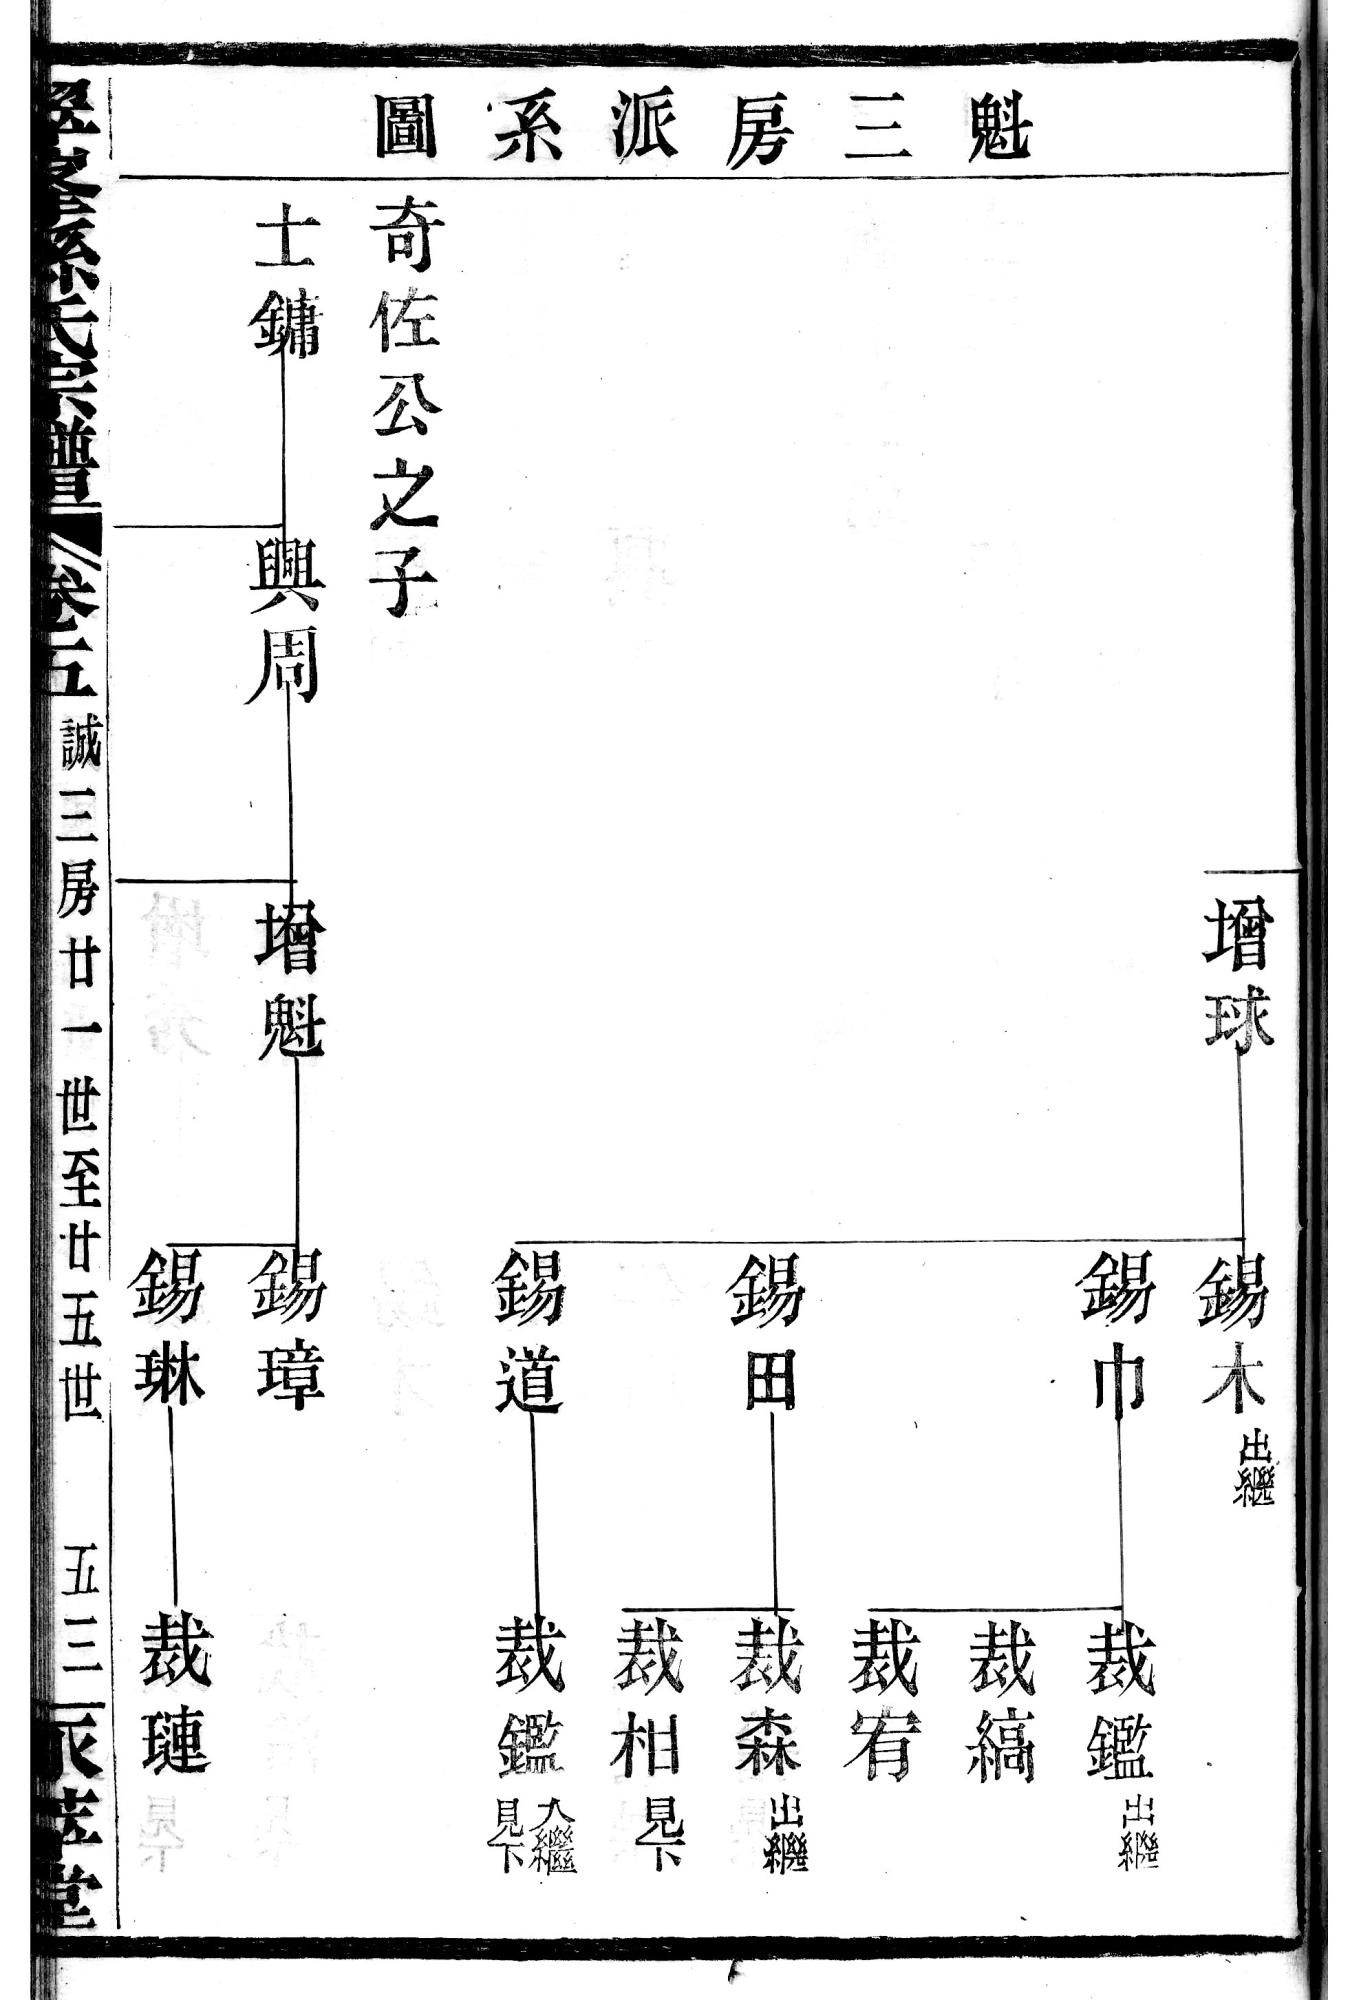 魁三房派系圖
增球
錫木 出繼
錫巾
裁鑑 出繼
裁縞
裁宥
錫田
裁森 出繼
裁相 見下
錫道
裁鑑 入繼 見下
奇佐公之子
士鏞
興周
增魁
錫璋
錫琳
裁璉
孫氏宗譜 卷五 誠三房廿一世至廿五世 五三 萃堂